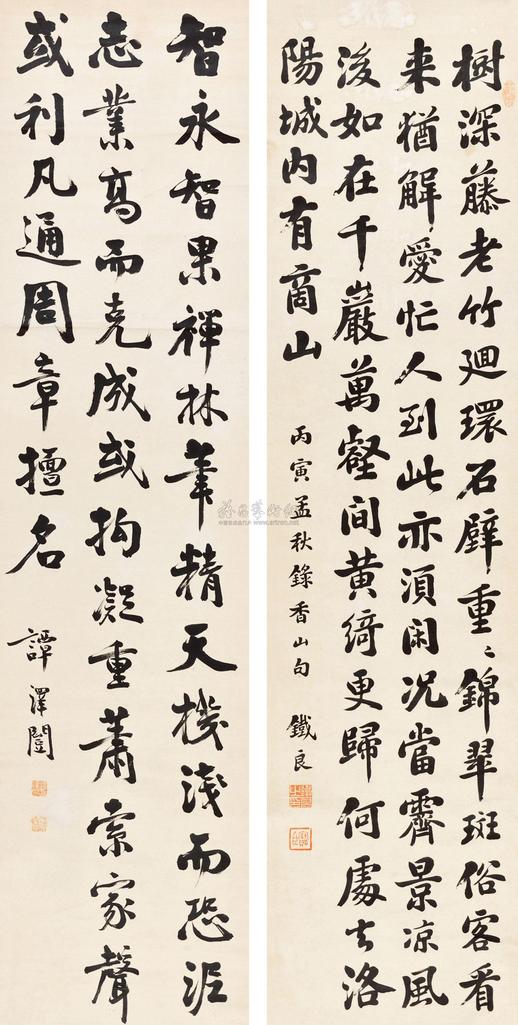 樹深藤老竹廻環石壁重〻錦翠斑俗客看
来猶解愛忙人到此亦須闲况當霽景凉風
後如在千巖萬壑间黄綺更歸何處去洛
陽城内有商山
丙寅孟秋錄香山句
鐵良
智永智果禪林筆精天機浅而恐泥
志業高而克成或拘凝重蕭索家聲
或利凡通周章擅名
譚澤闓